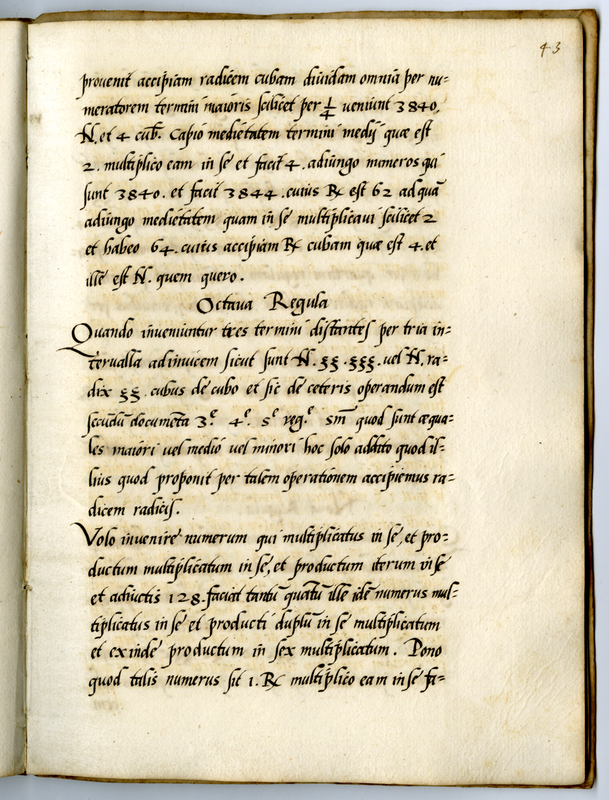 43
provenit accipiam radicem cubam dividam omnia per nu=
meratorem termini maioris scilicet per ¼ veniunt 3840.
N. et 4 cub̃. Capio medietatem termini medij quae est
2. multiplico eam in se et facit 4. adiungo numeros qui
sunt 3840. et facit 3844. cuius ℞ est 62 ad quã
adiungo medietatem quam in se multiplicavi scilicet 2
et habeo 64. cuius accipiam ℞ cubam quae est 4. et
ille est N. quem quero.
Octava Regula
Quando inveniuntur tres termini distantes per tria in=
tervalla adinvicem sicut sunt N. §§. §§§. vel N. ra=
dix §§. cubus de cubo et sic de ceteris operandum est
secũdũ documẽta 3.e 4.e 5.e reg.e sm̃ quod sunt æqua=
les maiori vel medio vel minori hoc solo addito quod il=
lius quod proponit per talem operationem accipiemus ra=
dicem radicis.
Volo invenire numerum qui multiplicatus in se, et pro=
ductum multiplicatum in se, et productum iterum in se
et adiuctis 128. faciat tantũ quãtũ ille idẽ numerus mul=
tiplicatus in se et producti duplũ in se multiplicatum
et exinde productum in sex multiplicatum. Pono
quod talis numerus sit 1. ℞ multiplico eam in se fa=